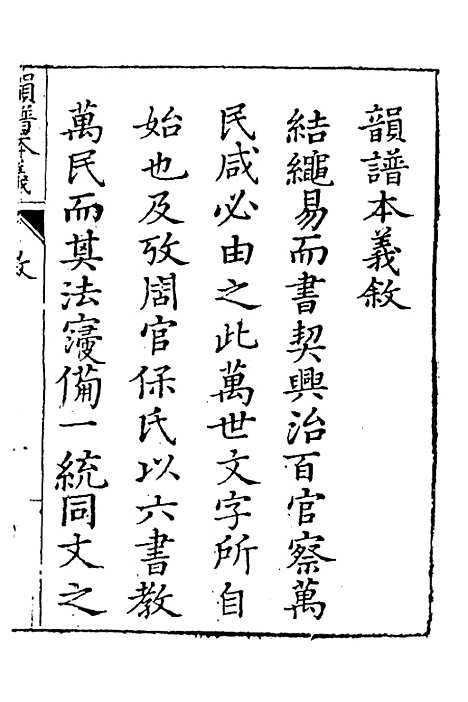 韻譜本義敘
結繩易而書契興治百官察萬
民咸必由之此萬世文字所自
始也及攷周官保氏以六書教
萬民而其法寖備一統同文之
韻譜本義
敘